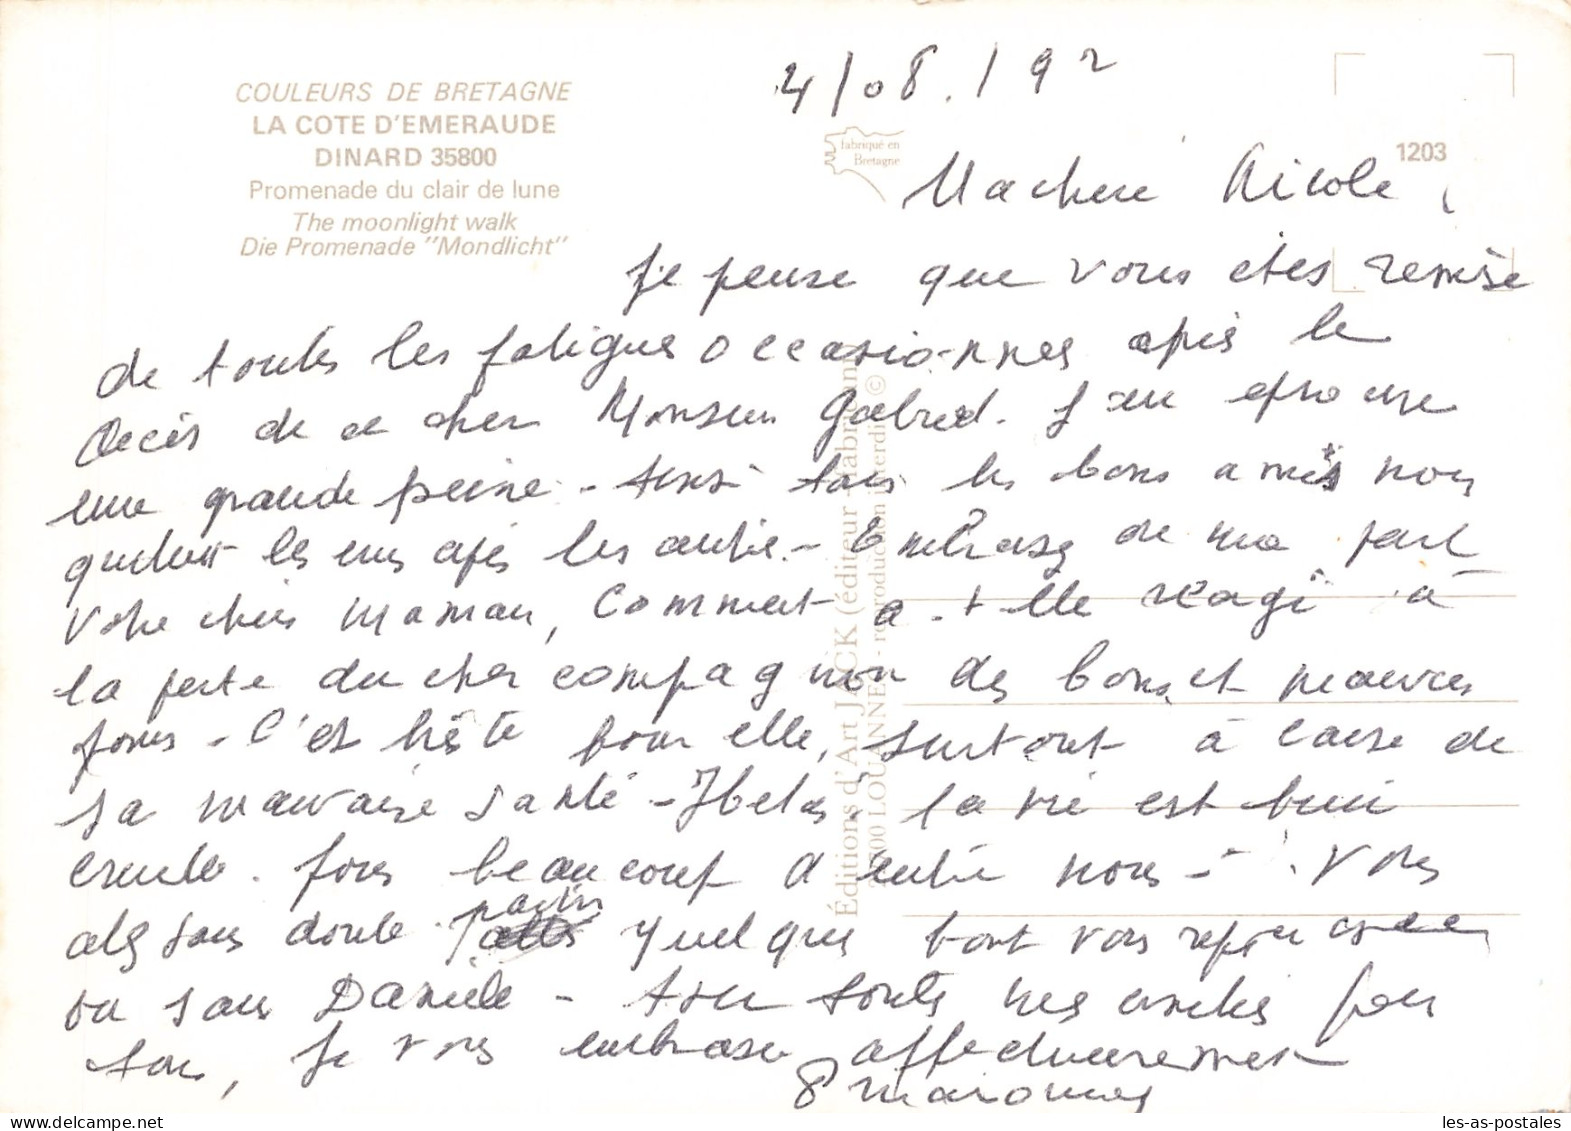 COULEURS DE BRETAGNE
LA COTE D'EMERAUDE
DINARD 35800
Promenade du clair de lune
The moonlight walk
Die Promenade "Mondlicht"
4/08./92
fabriqué en
Bretagne
1203
Ma chere Nicole,
Je pense que vous etes remise
de toutes les fatigues occasionnes après le
decès de ce cher Monsieur Gabriel. J'en eprouve
une grande peine - Ainsi tous les bons amis nous
quittent les uns après les autres - Embrassez de ma part
votre chère maman, Comment a-t-elle réagi à
la perte du cher compagnon des bons et mauvais
jours - C'est triste pour elle, surtout à cause de
sa mauvaise santé - Helas, la vie est bien
cruelle. pour beaucoup d'entre nous - Vous
alez sans doute partir quelques part vous reposer
ou sans Danièle - Avec toutes mes amitiés pour
tous, Je vous embrasse affectueusement
Éditions d'Art JACK (éditeur-fabricant)
LOUANNEC - reproduction interdite ©
les-as-postales